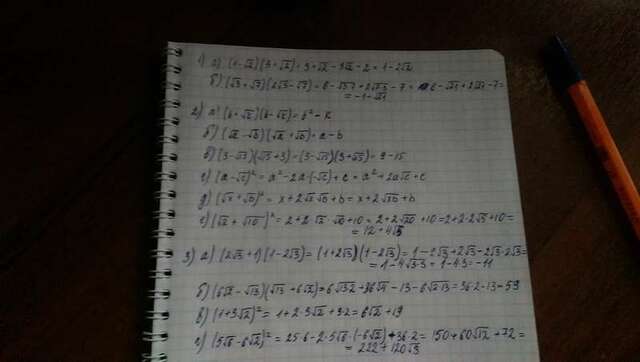 1) а) (1-√2)(3+√2) = 3+√2-3√2-2 = 1-2√2
б) (√3+√7)(2√3-√7) = 6-√21+2√7·3-7 = 6-√21+2√21-7=
= -1-√21
2) а) (b+√k)(b-√k) = b²-k
б) (√a-√b)(√a+√b) = a-b
в) (3-√15)(√15+3) = (3-√15)(3+√15) = 9-15
г) (a-√c)² = a²-2a·(-√c)+c = a²+2a√c+c
д) (√x+√b)² = x+2√x√b+b = x+2√xb+b
е) (√2+√10)² = 2+2√2·√10+10 = 2+2√20+10 = 2+2·2√5+10 =
= 12+4√5
3) а) (2√3+1)(1-2√3) = (1+2√3)(1-2√3) = 1-2√3+2√3-2√3·2√3=
= 1-4√3·3 = 1-4·3 = -11
б) (6√2-√13)(√13+6√2) = 36·2-13 = 59
в) (1+3√2)² = 1+2·3√2+9·2 = 6√2+19
г) (5√6-6√2)² = 25·6-2·5√6·(-6√2)+36·2 = 150+60√12+72 =
= 222+120√3